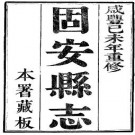 咸豐己未年重修
固安縣志
本署藏板